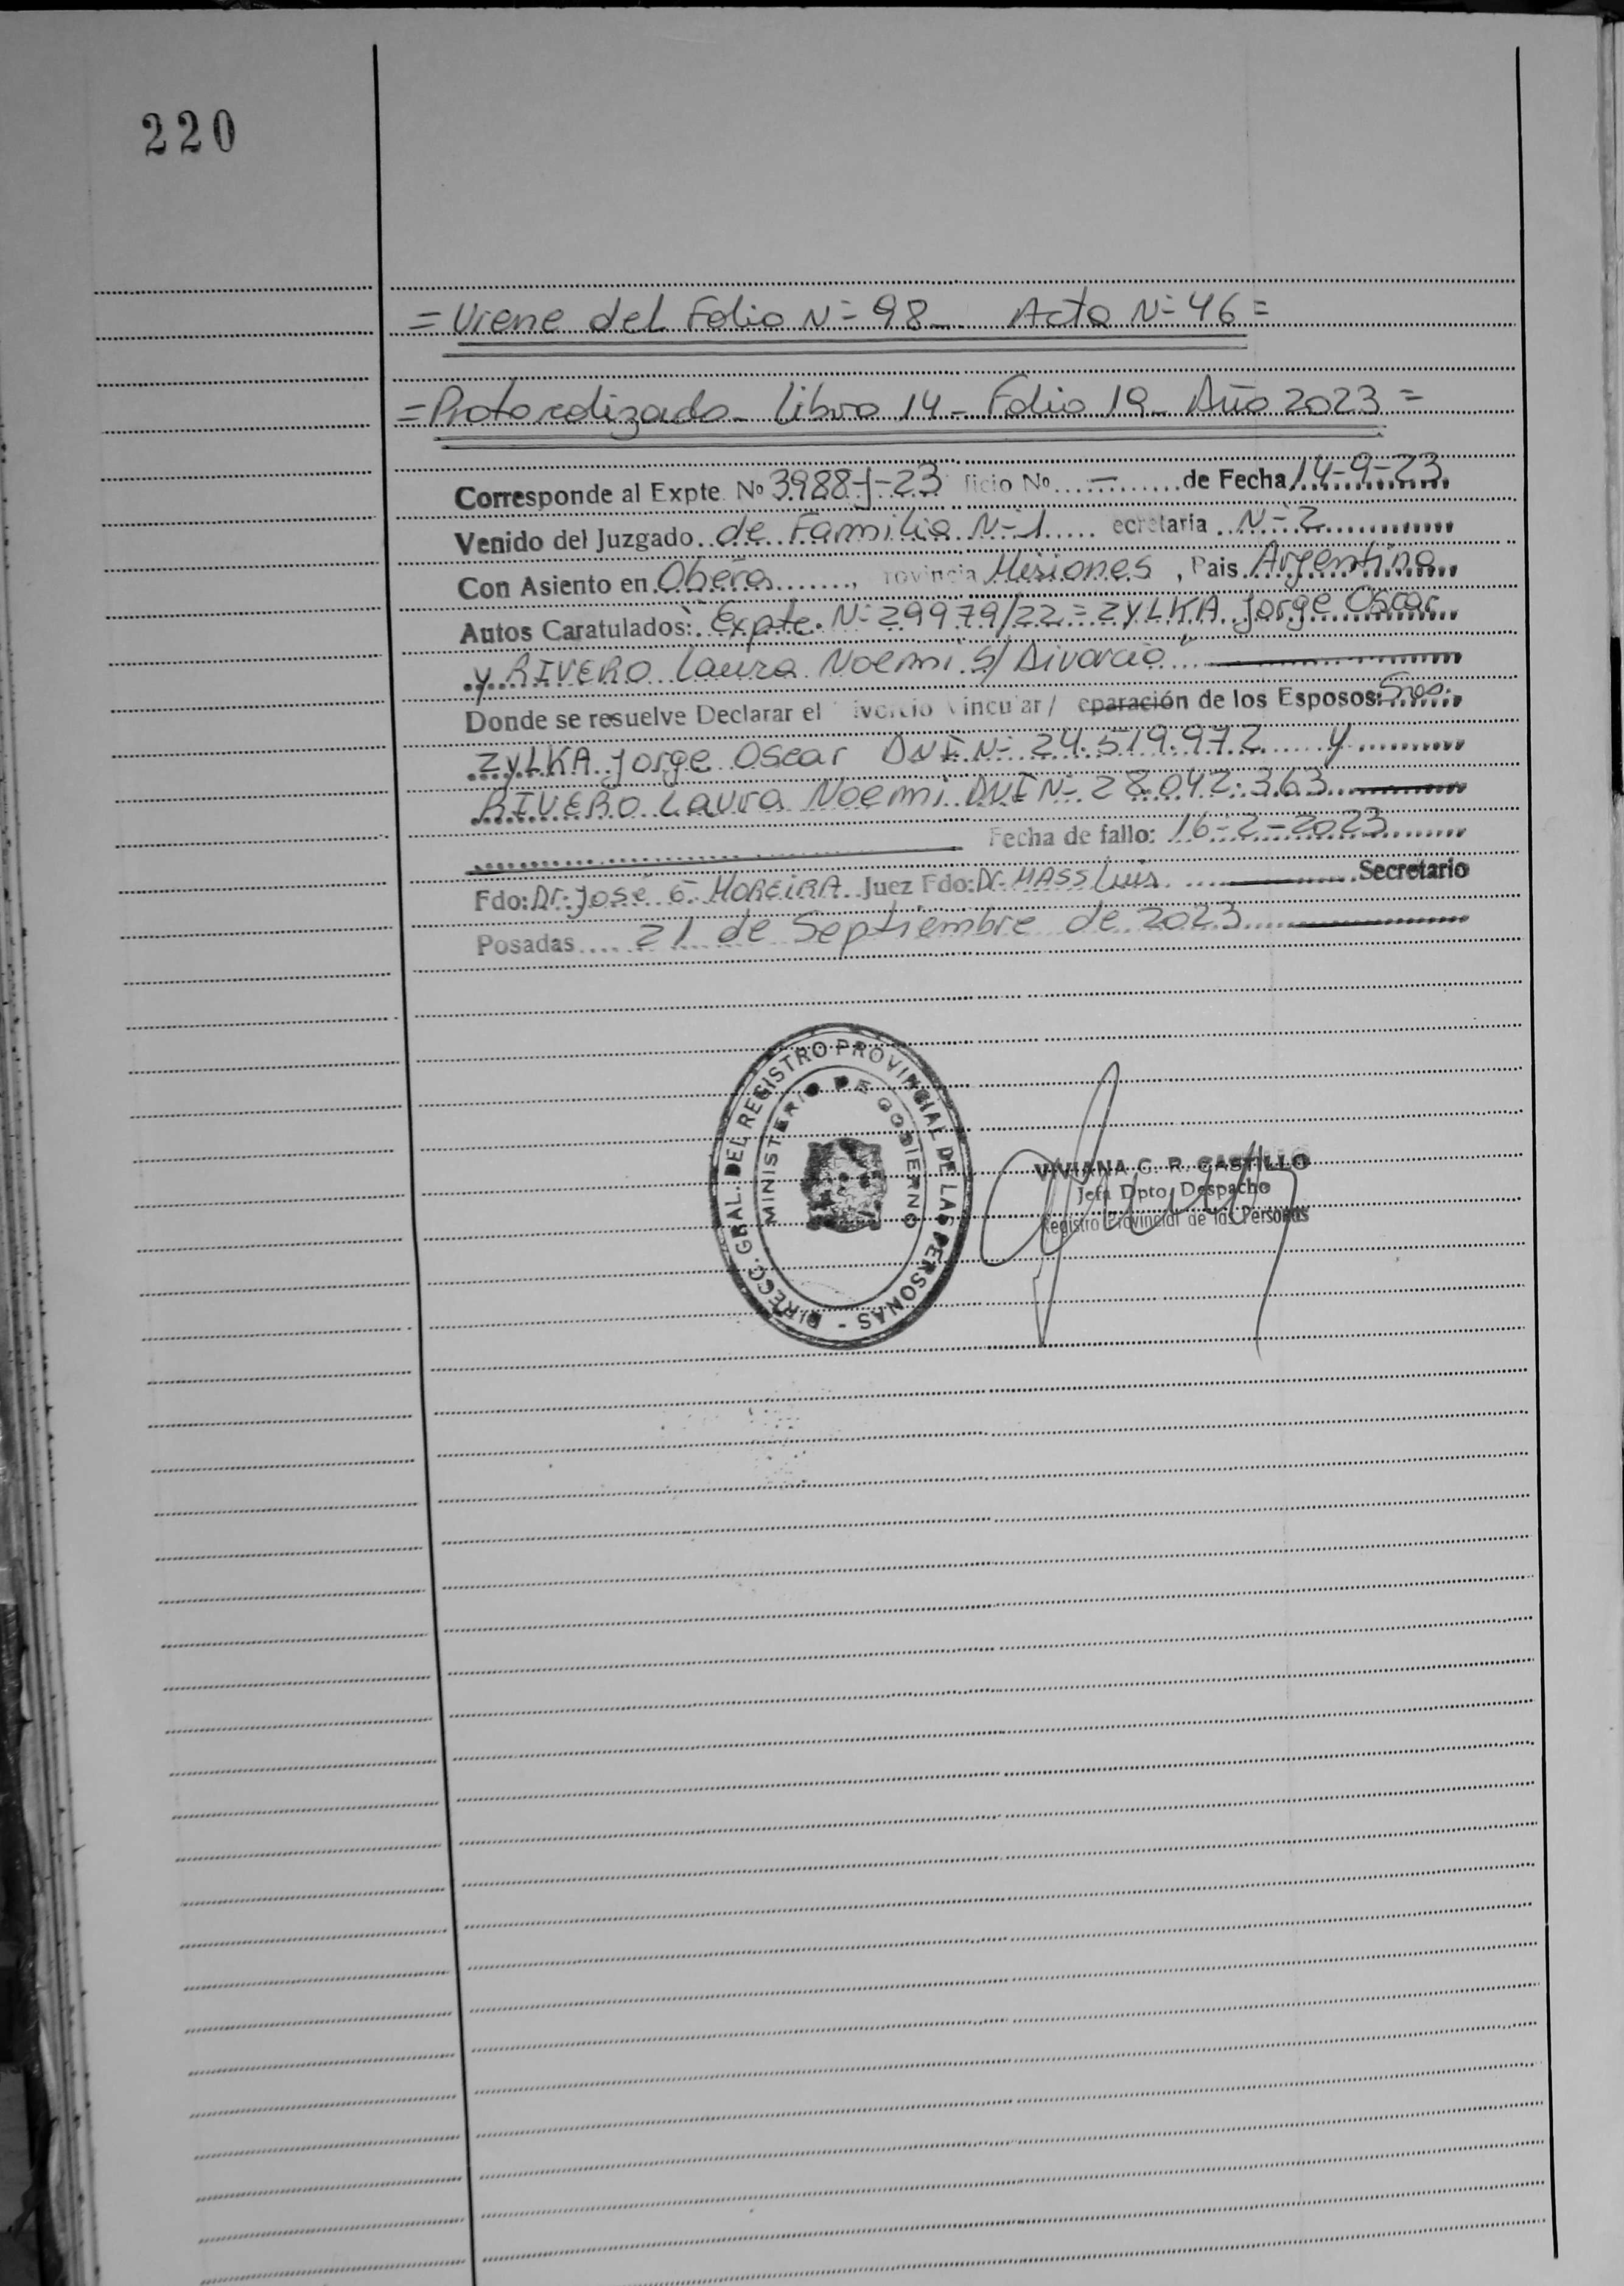 220
= Viene del Folio N= 98_ Acta N= 46 =
= Protocolizado_ Libro 14_ Folio 19_ Año 2023 =
Corresponde al Expte. Nº 3988-J-23 ficio Nº....—..........de Fecha 14-9-23
Venido del Juzgado de Familia N= 1 ..... ecretaria . N= 2
Con Asiento en Oberá......., rovincia Misiones, Pais Argentina
Autos Caratulados: "Expte. N= 29979/22 = ZYLKA Jorge Oscar
y RIVERO Laura Noemi S/ Divorcio"
Donde se resuelve Declarar el ivorcio vincular / eparación de los Esposos: Sres.
ZYLKA Jorge Oscar DNI N= 24.519.972 y
RIVERO Laura Noemi DNI N= 28.042.363
Fecha de fallo: 16-2-2023
Fdo: Dr. José G. MOREIRA Juez Fdo: Dr. MASS Luis Secretario
Posadas.... 21 de Septiembre de 2023
DIRECC. GRAL. DEL REGISTRO PROVINCIAL DE LAS PERSONAS -
MINISTERIO DE GOBIERNO
VIVIANA C. R. CASTILLO
Jefa Dpto. Despacho
Registro Provincial de las Personas